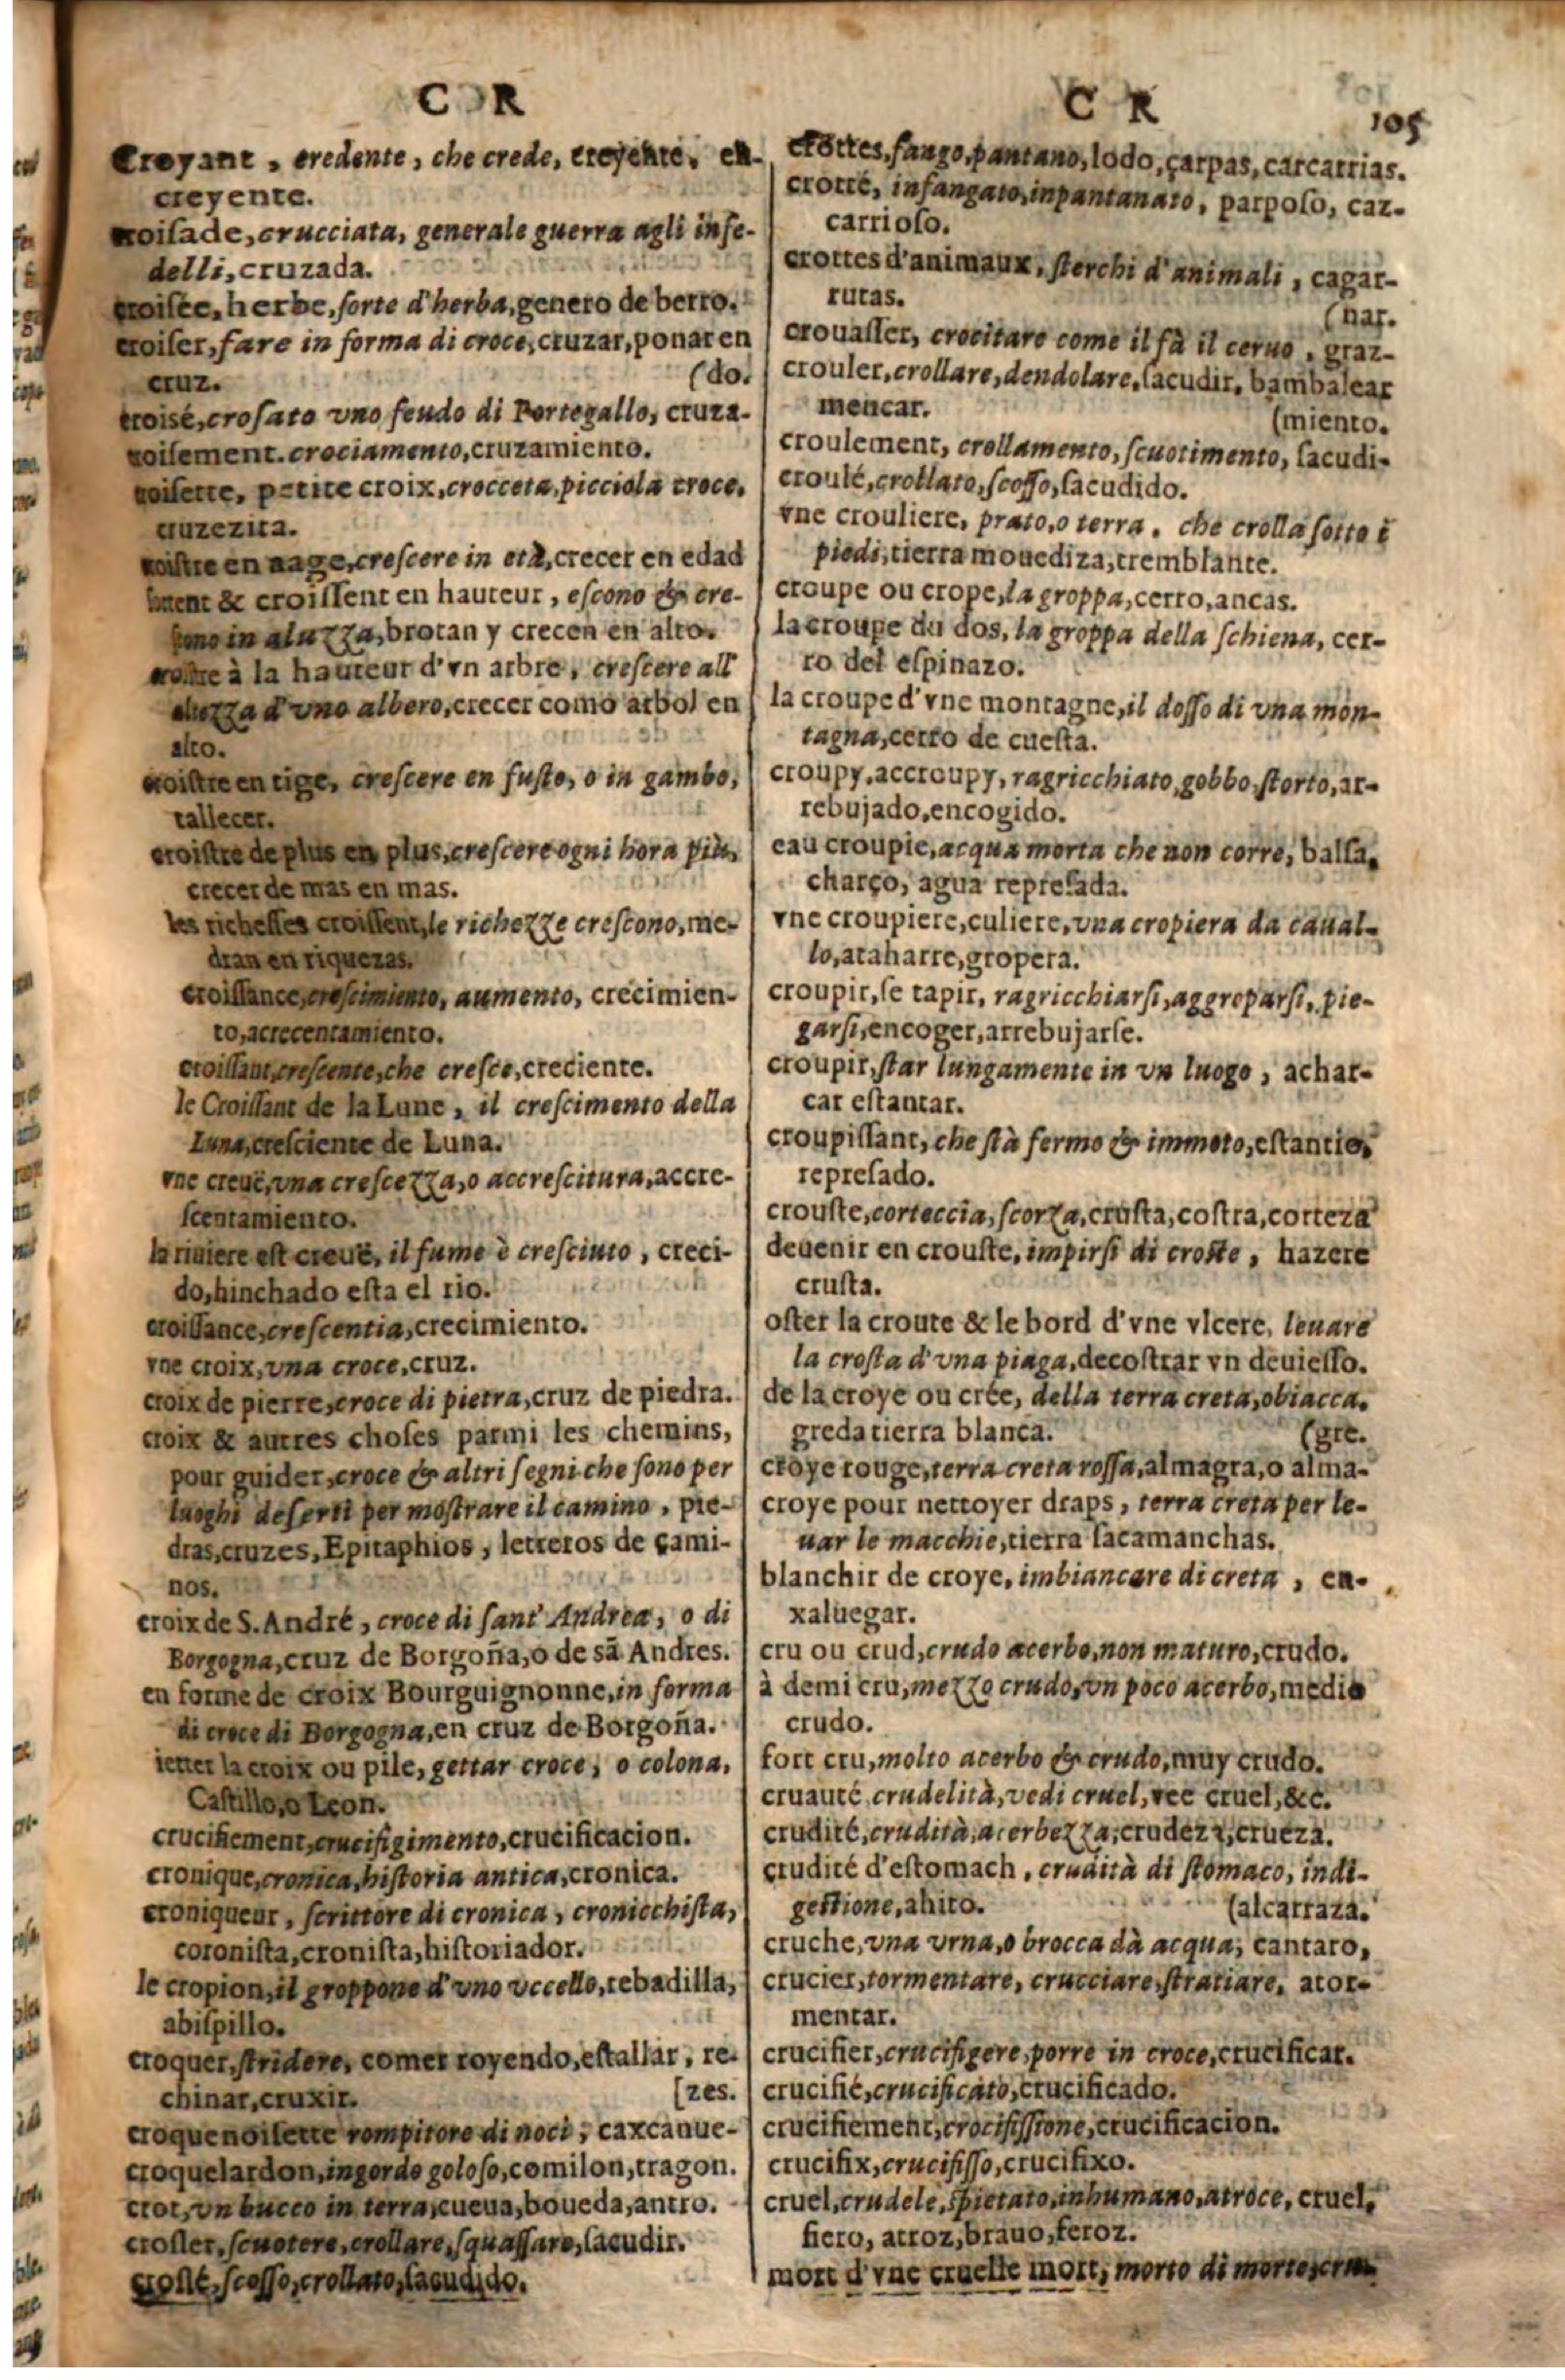 C R
Croyant, credente, che crede, creyente, en-
creyente.
croiſade, crucciata, generale guerra agli infe-
delli, cruzada.
croiſée, herbe, ſorte d'herba, genero de berro.
croiſer, fare in forma di croce, cruzar, ponar en
cruz. (do.
croiſé, croſato vno feudo di Portegallo, cruza-
croiſement. crociamento, cruzamiento.
croiſette, petite croix, crocceta, picciola croce,
cruzezita.
croiſtre en aage, creſcere in età, crecer en edad
ſortent & croiſſent en hauteur, eſcono & cre-
ſcono in aluzza, brotan y crecen en alto.
croiſtre à la hauteur d'vn arbre, creſcere all'
altezza d'vno albero, crecer como arbol en
alto.
croiſtre en tige, creſcere en fuſto, o in gambo,
tallecer.
croiſtre de plus en plus, creſcere ogni hora più,
crecer de mas en mas.
les richeſſes croiſſent, le richezze creſcono, me-
dran en riquezas.
croiſſance, creſcimiento, aumento, crecimien-
to, acrecentamiento.
croiſſant, creſcente, che creſce, creciente.
le Croiſſant de la Lune, il creſcimento della
Luna, creſciente de Luna.
vne creuë, vna creſcezza, o accreſcitura, accre-
ſcentamiento.
la riuiere eſt creuë, il fume è creſciuto, creci-
do, hinchado eſta el rio.
croiſſance, creſcentia, crecimiento.
vne croix, vna croce, cruz.
croix de pierre, croce di pietra, cruz de piedra.
croix & autres choſes parmi les chemins,
pour guider, croce & altri ſegni che ſono per
luoghi deſerti per moſtrare il camino, pie-
dras, cruzes, Epitaphios, letreros de çami-
nos.
croix de S. André, croce di ſant' Andrea, o di
Borgogna, cruz de Borgoña, o de sã Andres.
en forme de croix Bourguignonne, in forma
di croce di Borgogna, en cruz de Borgoña.
ietter la croix ou pile, gettar croce, o colona,
Caſtillo, o Leon.
crucifiement, crucifigimento, crucificacion.
cronique, cronica, hiſtoria antica, cronica.
croniqueur, ſcrittore di cronica, cronicchiſta,
coroniſta, croniſta, hiſtoriador.
le cropion, il groppone d'vno vccello, rebadilla,
abiſpillo.
croquer, ſtridere, comer royendo, eſtallar, re-
chinar, cruxir. [zes.
croquenoiſette rompitore di noci, caxcanue-
croquelardon, ingordo goloſo, comilon, tragon.
crot, vn bucco in terra, cueua, boueda, antro.
croſler, ſcuotere, crollare, ſquaſſare, ſacudir.
croſlé, ſcoſſo, crollato, ſacudido.
C R 105
crottes, fango, pantano, lodo, çarpas, carcarrias.
crotté, infangato, inpantanato, parpoſo, caz-
carrioſo.
crottes d'animaux, ſterchi d'animali, cagar-
rutas. (nar.
crouaſſer, crocitare come il fà il ceruo, graz-
crouler, crollare, dendolare, ſacudir, bambalear
mencar. (miento.
croulement, crollamento, ſcuotimento, ſacudi-
croulé, crollato, ſcoſſo, ſacudido.
vne crouliere, prato, o terra, che crolla ſotto i
piedi, tierra mouediza, tremblante.
croupe ou crope, la groppa, cerro, ancas.
la croupe du dos, la groppa della ſchiena, cer-
ro del eſpinazo.
la croupe d'vne montagne, il doſſo di vna mon-
tagna, cerro de cueſta.
croupy, accroupy, ragricchiato, gobbo, ſtorto, ar-
rebujado, encogido.
eau croupie, acqua morta che non corre, balſa,
charço, agua repreſada.
vne croupiere, culiere, vna cropiera da caual-
lo, ataharre, gropera.
croupir, ſe tapir, ragricchiarſi, aggroparſi, pie-
garſi, encoger, arrebujarſe.
croupir, ſtar lungamente in vn luogo, achar-
car eſtantar.
croupiſſant, che ſtà fermo & immoto, eſtantio,
repreſado.
crouſte, corteccia, ſcorza, cruſta, coſtra, corteza
deuenir en crouſte, impirſi di croſte, hazere
cruſta.
oſter la croute & le bord d'vne vlcere, leuare
la croſta d'vna piaga, decoſtrar vn deuieſſo.
de la croye ou crée, della terra creta, o biacca.
greda tierra blanca. (gre.
croye rouge, terra creta roſſa, almagra, o alma-
croye pour nettoyer draps, terra creta per le-
uar le macchie, tierra ſacamanchas.
blanchir de croye, imbiancare di creta, en-
xaluegar.
cru ou crud, crudo acerbo, non maturo, crudo.
à demi cru, mezzo crudo, vn poco acerbo, medio
crudo.
fort cru, molto acerbo & crudo, muy crudo.
cruauté, crudelità, vedi cruel, vee cruel, &c.
crudité, crudità, acerbezza, crudeza, crueza.
crudité d'eſtomach, crudità di ſtomaco, indi-
geſtione, ahito. (alcarraza.
cruche, vna vrna, o brocca dà acqua, cantaro,
crucier, tormentare, crucciare, ſtratiare, ator-
mentar.
crucifier, crucifigere, porre in croce, crucificar.
crucifié, crucificato, crucificado.
crucifiement, crocifiſſione, crucificacion.
crucifix, crucifiſſo, crucifixo.
cruel, crudele, ſpietato, inhumano, atroce, cruel,
fiero, atroz, brauo, feroz.
mort d'vne cruelle mort, morto di morte, cru-